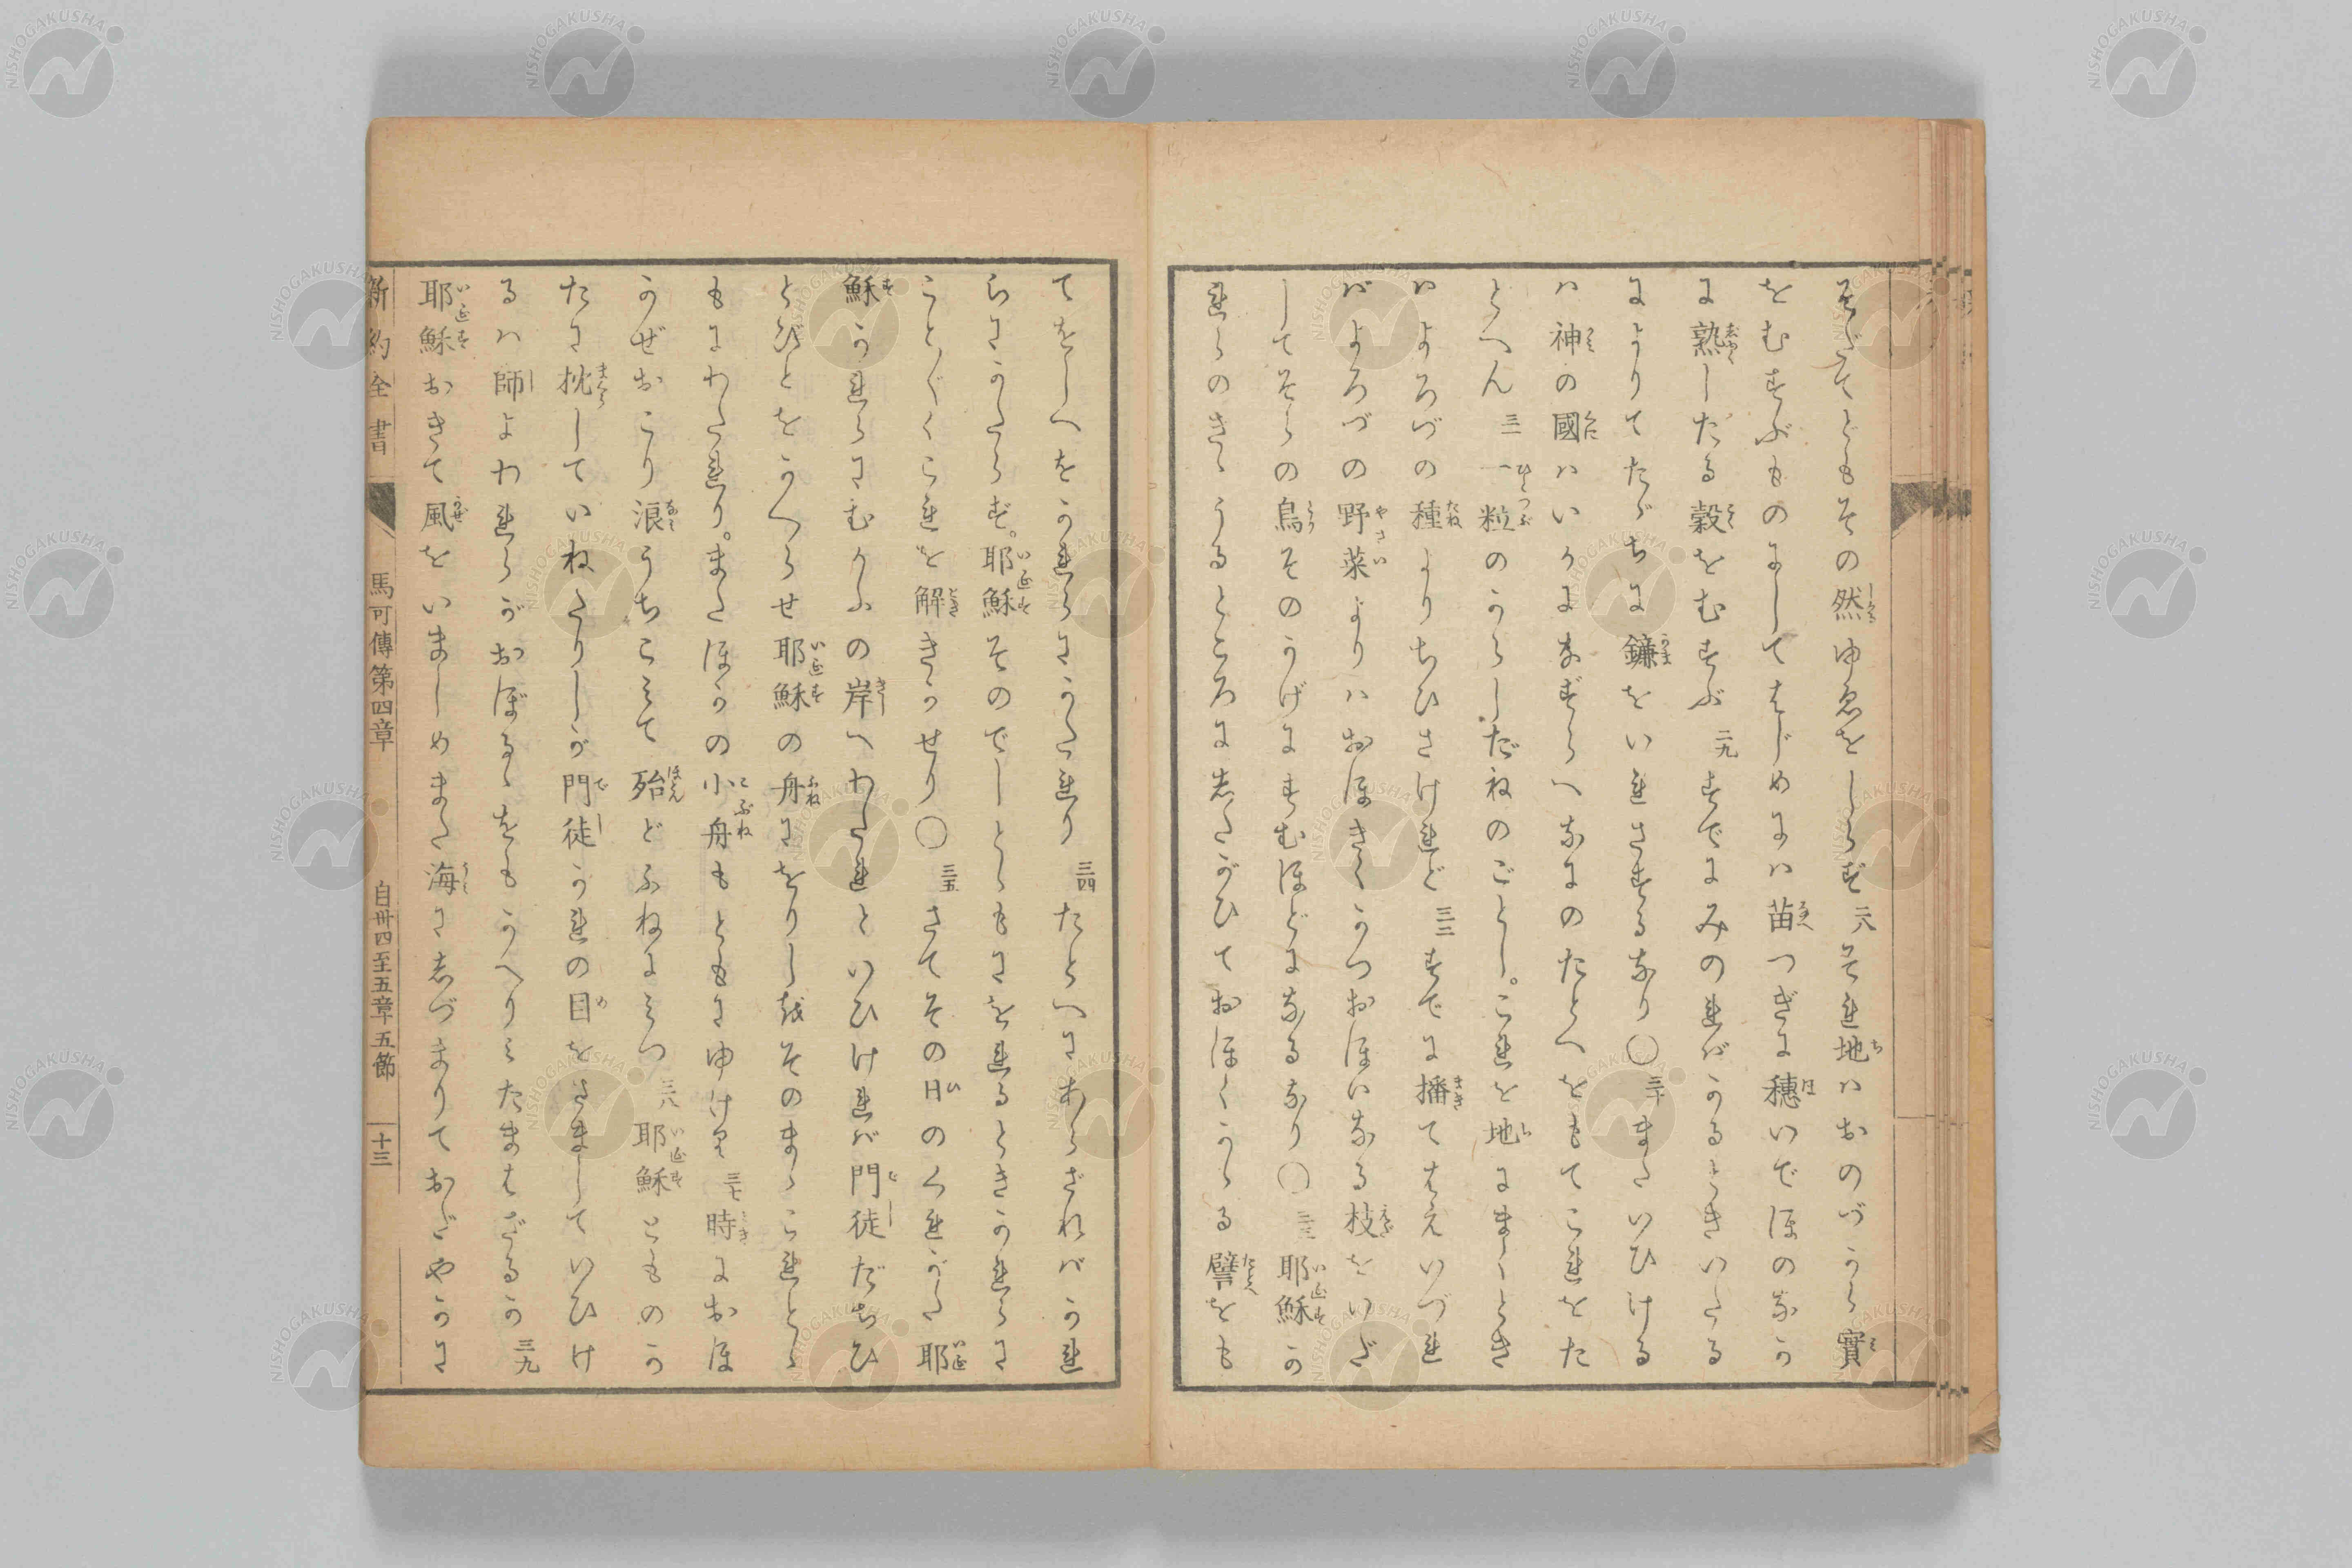 そだてどもその然ゆゑをしらず二八それ地ハおのづから實
をむすぶものにしてはじめにハ苗つぎに穗いでほのなか
に熟したる穀をむすぶ二九すでにみのれバかるときいたる
によりてたゞちに鎌をいれさするなり〇三十またいひける
ハ神の國ハいかになずらへなにのたとへをもてこれをた
とへん三一一粒のからしだねのごとし。これを地にまくとき
ハよろづの種よりちひさけれど三二すでに播てはえいづれ
バよろづの野菜よりハおほきくかつおほいなる枝をいだ
してそらの鳥そのかげにすむほどになるなり〇三三耶穌か
れらのきゝうるところにしたがひておほくかゝる譬をも
てをしへをかれらにかたれり三四たとへにあらざれバかれ
らにかたらず。耶穌そのでしとゝもにをれるときかれらに
こと〴〵くこれを解きかせり〇三五さてその日のくれがた耶
穌かれらにむかふの岸へわたれといひけれバ門徒たちひ
とびとをかへらせ耶穌の舟にをりしをそのまゝこれとゝ
もにわたれり。またほかの小舟もともにゆけり三七時におほ
かぜおこり浪うちこみて殆どふねにみつ三八耶穌とものか
たに枕していねたりしが門徒かれの目をさましていひけ
るハ師よわれらがおぼるゝをもかへりみたまはざるか三九
耶穌おきて風をいましめまた海にしづまりておだやかに
新約全書 馬可傳第四章 自卅四至五章五節 十三
NISHOGAKUSHA